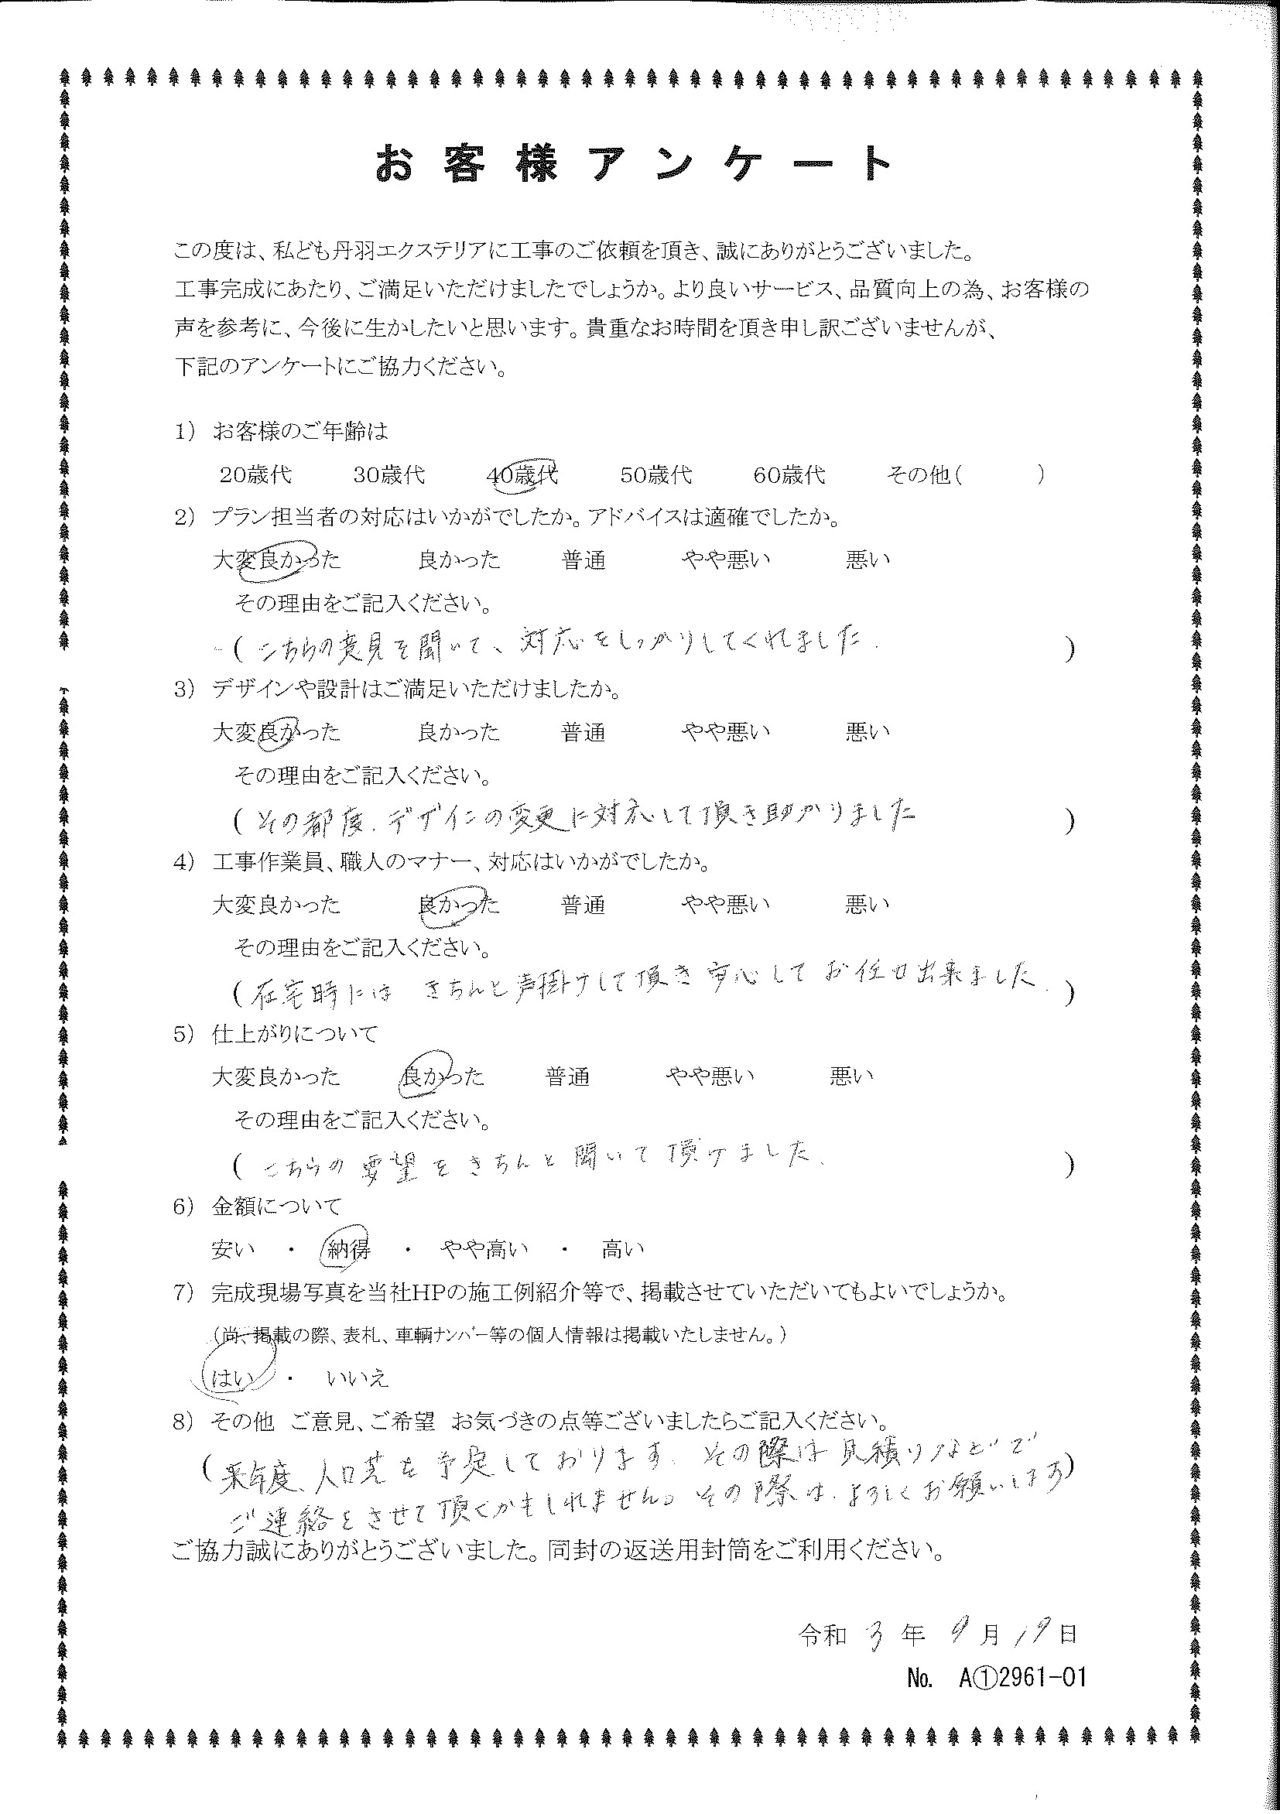 お客様アンケート
この度は、私ども丹羽エクステリアに工事のご依頼を頂き、誠にありがとうございました。
工事完成にあたり、ご満足いただけましたでしょうか。より良いサービス、品質向上の為、お客様の
声を参考に、今後に生かしたいと思います。貴重なお時間を頂き申し訳ございませんが、
下記のアンケートにご協力ください。
1) お客様のご年齢は
20歳代 30歳代 40歳代 50歳代 60歳代 その他( )
2) プラン担当者の対応はいかがでしたか。アドバイスは適確でしたか。
大変良かった 良かった 普通 やや悪い 悪い
その理由をご記入ください。
(こちらの意見を聞いて、対応をしっかりしてくれました.)
3) デザインや設計はご満足いただけましたか。
大変良かった 良かった 普通 やや悪い 悪い
その理由をご記入ください。
(その都度、デザインの変更に対応して頂き助かりました)
4) 工事作業員、職人のマナー、対応はいかがでしたか。
大変良かった 良かった 普通 やや悪い 悪い
その理由をご記入ください。
(在宅時には きちんと声掛けして頂き安心してお任せ出来ました.)
5) 仕上がりについて
大変良かった 良かった 普通 やや悪い 悪い
その理由をご記入ください。
(こちらの要望をきちんと聞いて頂けました.)
6) 金額について
安い ・ 納得 ・ やや高い ・ 高い
7) 完成現場写真を当社HPの施工例紹介等で、掲載させていただいてもよいでしょうか。
(尚、掲載の際、表札、車輌ナンバー等の個人情報は掲載いたしません。)
はい ・ いいえ
8) その他 ご意見、ご希望 お気づきの点等ございましたらご記入ください。
(来年度、人口芝を予定しております. その際は見積りなどで
ご連絡をさせて頂くかもしれません。その際は、よろしくお願いします)
ご協力誠にありがとうございました。同封の返送用封筒をご利用ください。
令和 3 年 9 月 19 日
No. A①2961-01